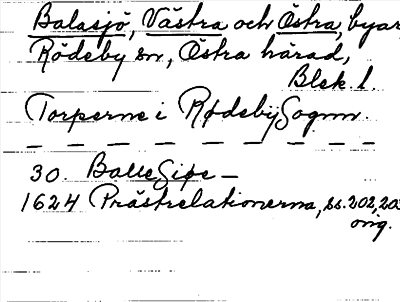 Balasjö, Västra och Östra, byar
Rödeby sn, Östra härad,
Blek. l.
Torperne i Rødeby Sognn.
30. Balle Siøe —
1624 Prästrelationerna, ss. 202, 203
orig.